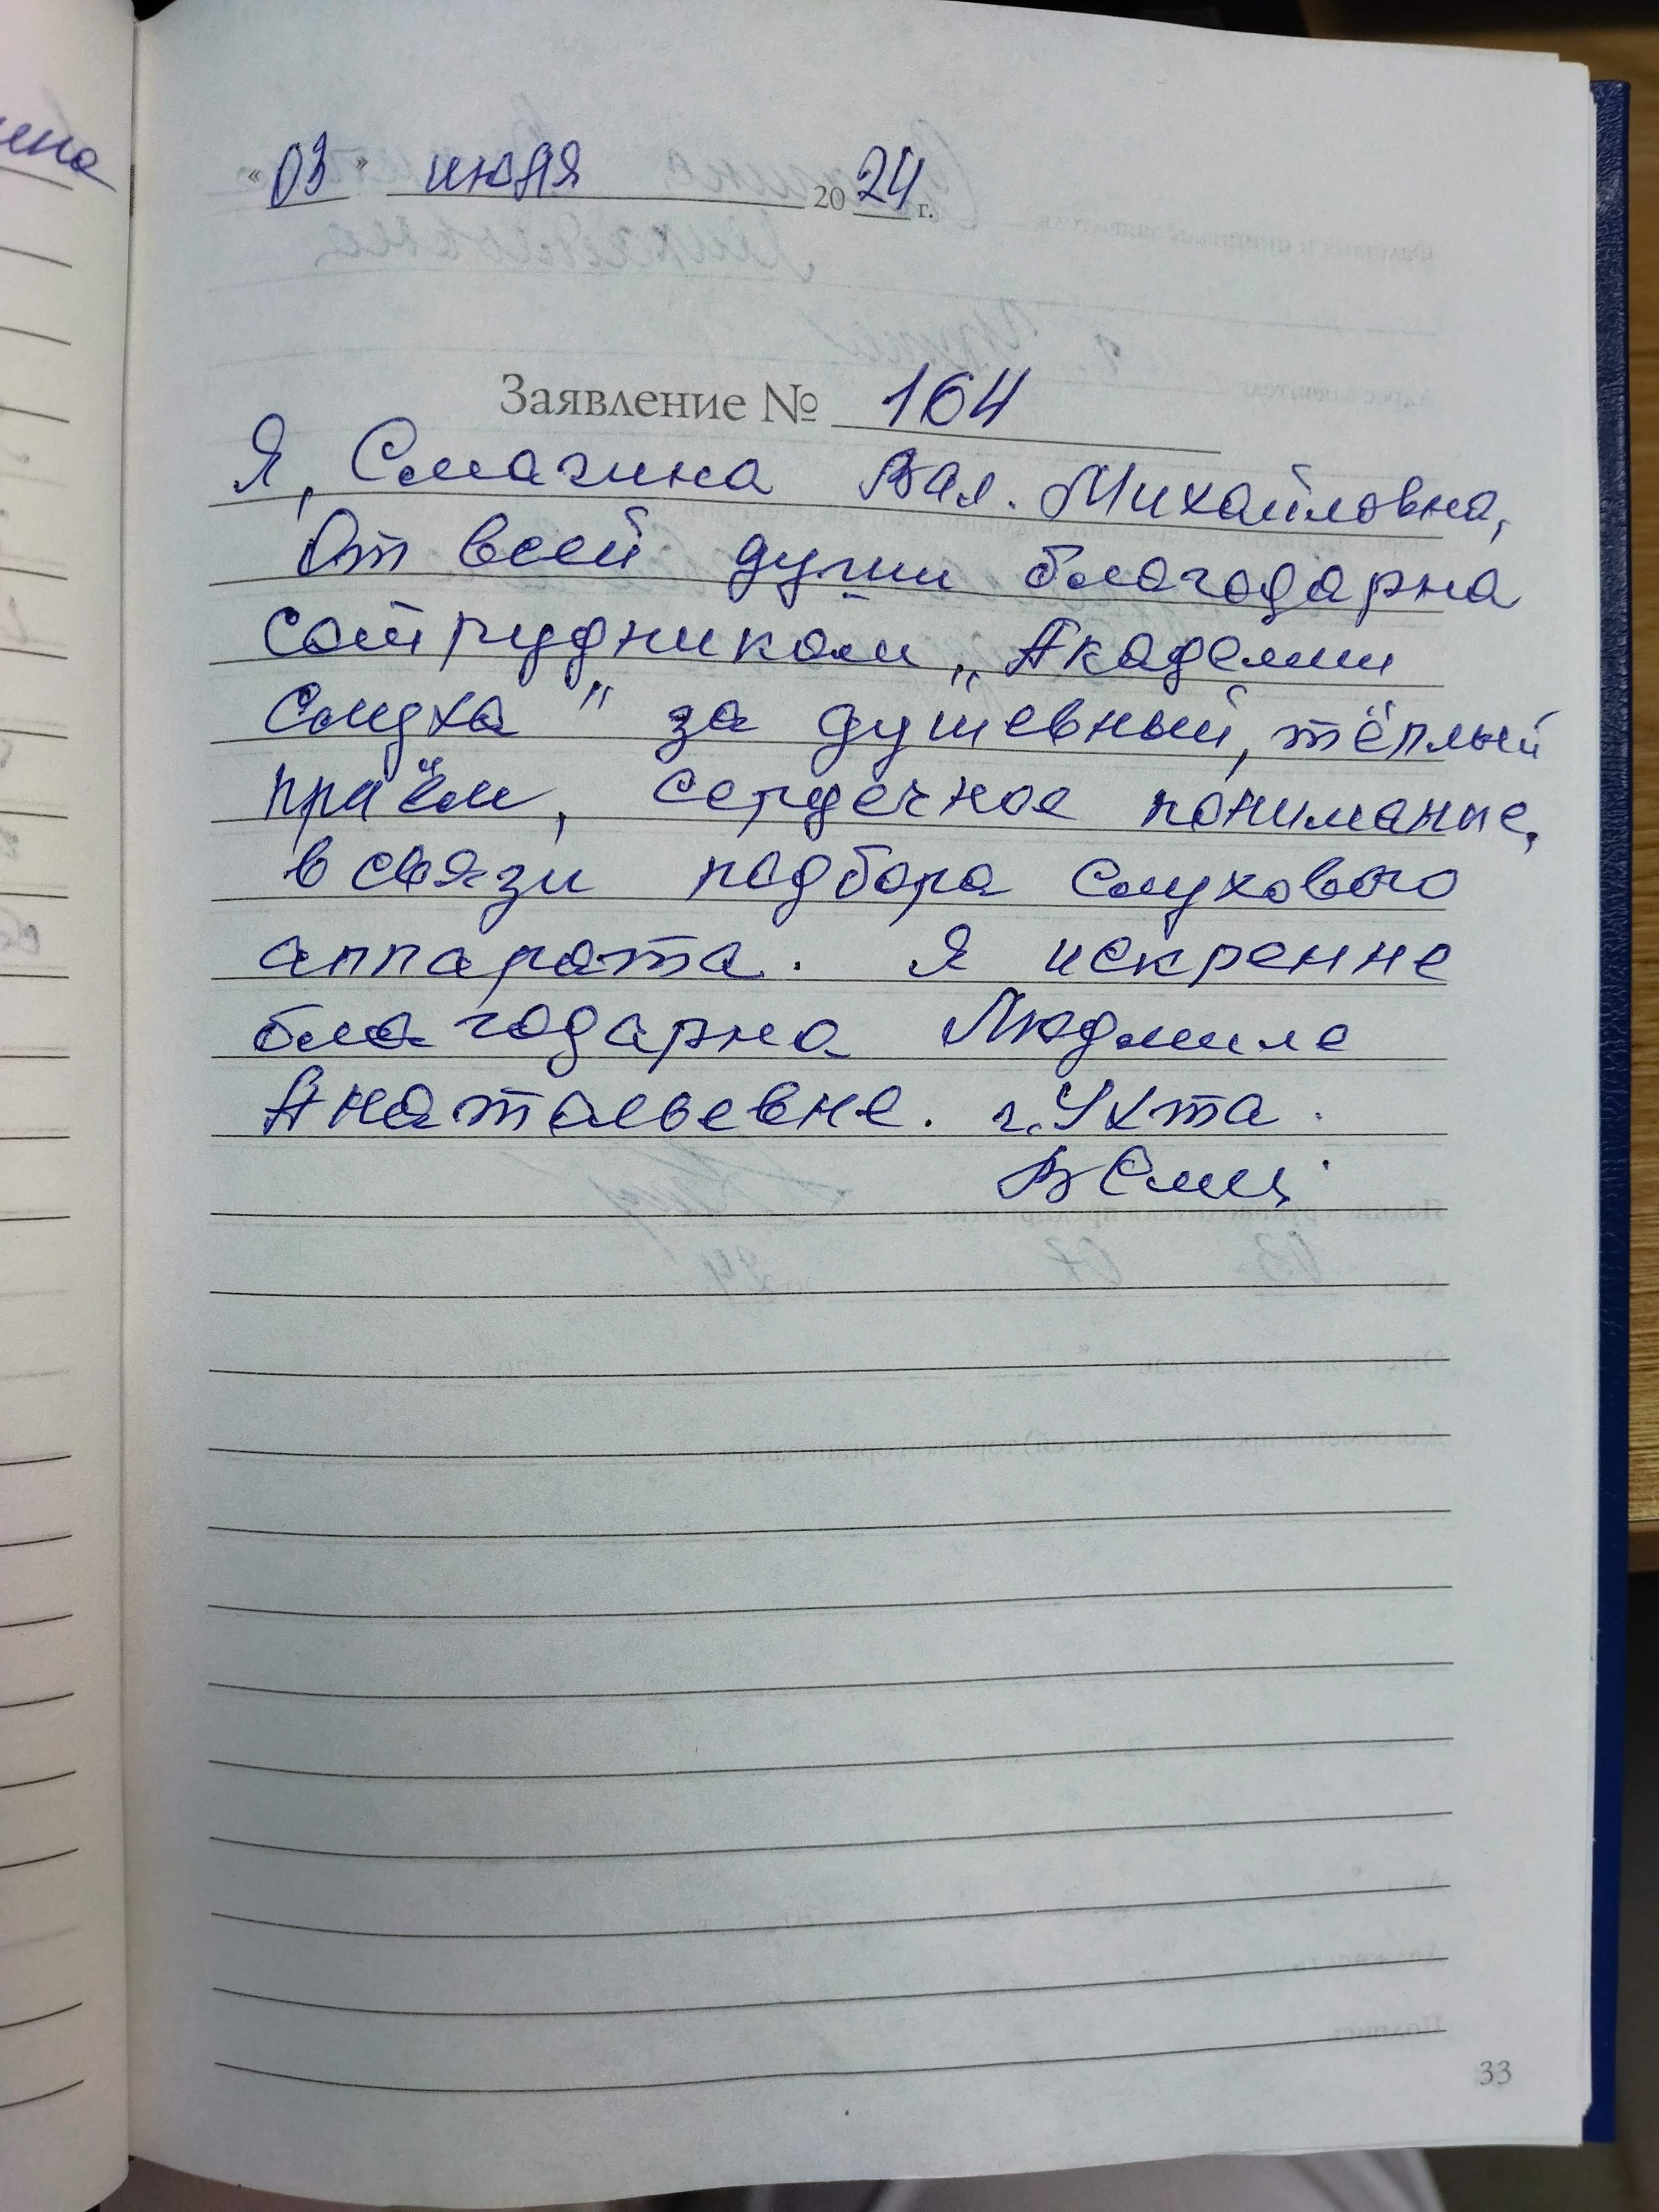 ена
« 03 » июля 20 24 г.
Заявление № 164
Я, Смагина Вал. Михайловна,
От всей души благодарна
сотрудникам „Академии
слуха" за душевный, тёплый
приём, сердечное понимание,
в связи подбора слухового
аппарата. Я искренне
благодарна Людмиле
Анатольевне. г. Ухта.
33